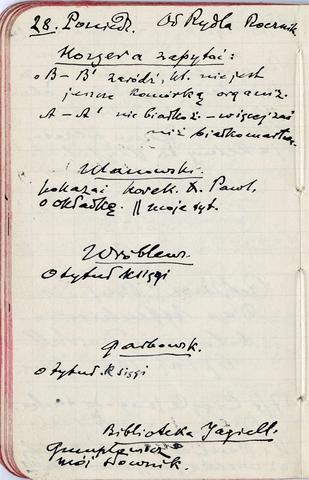 28. Poniedz. Od Rydla Rocznik
Hozera zapytać:
o B – B' zaródź, kt. nie jest
jeszcze komórką organiz.
A – A' nie białko ż – więcej zaś
niż białko martwe.
Ulanowski.
pokazać korek. X. Pawl.
o okładkę. || moje tyt.
Wróblews.
o tytuł księgi
Parkowsk.
o tytuł księgi
Biblioteka Jagiell.
Gumplowicz
mój słownik.